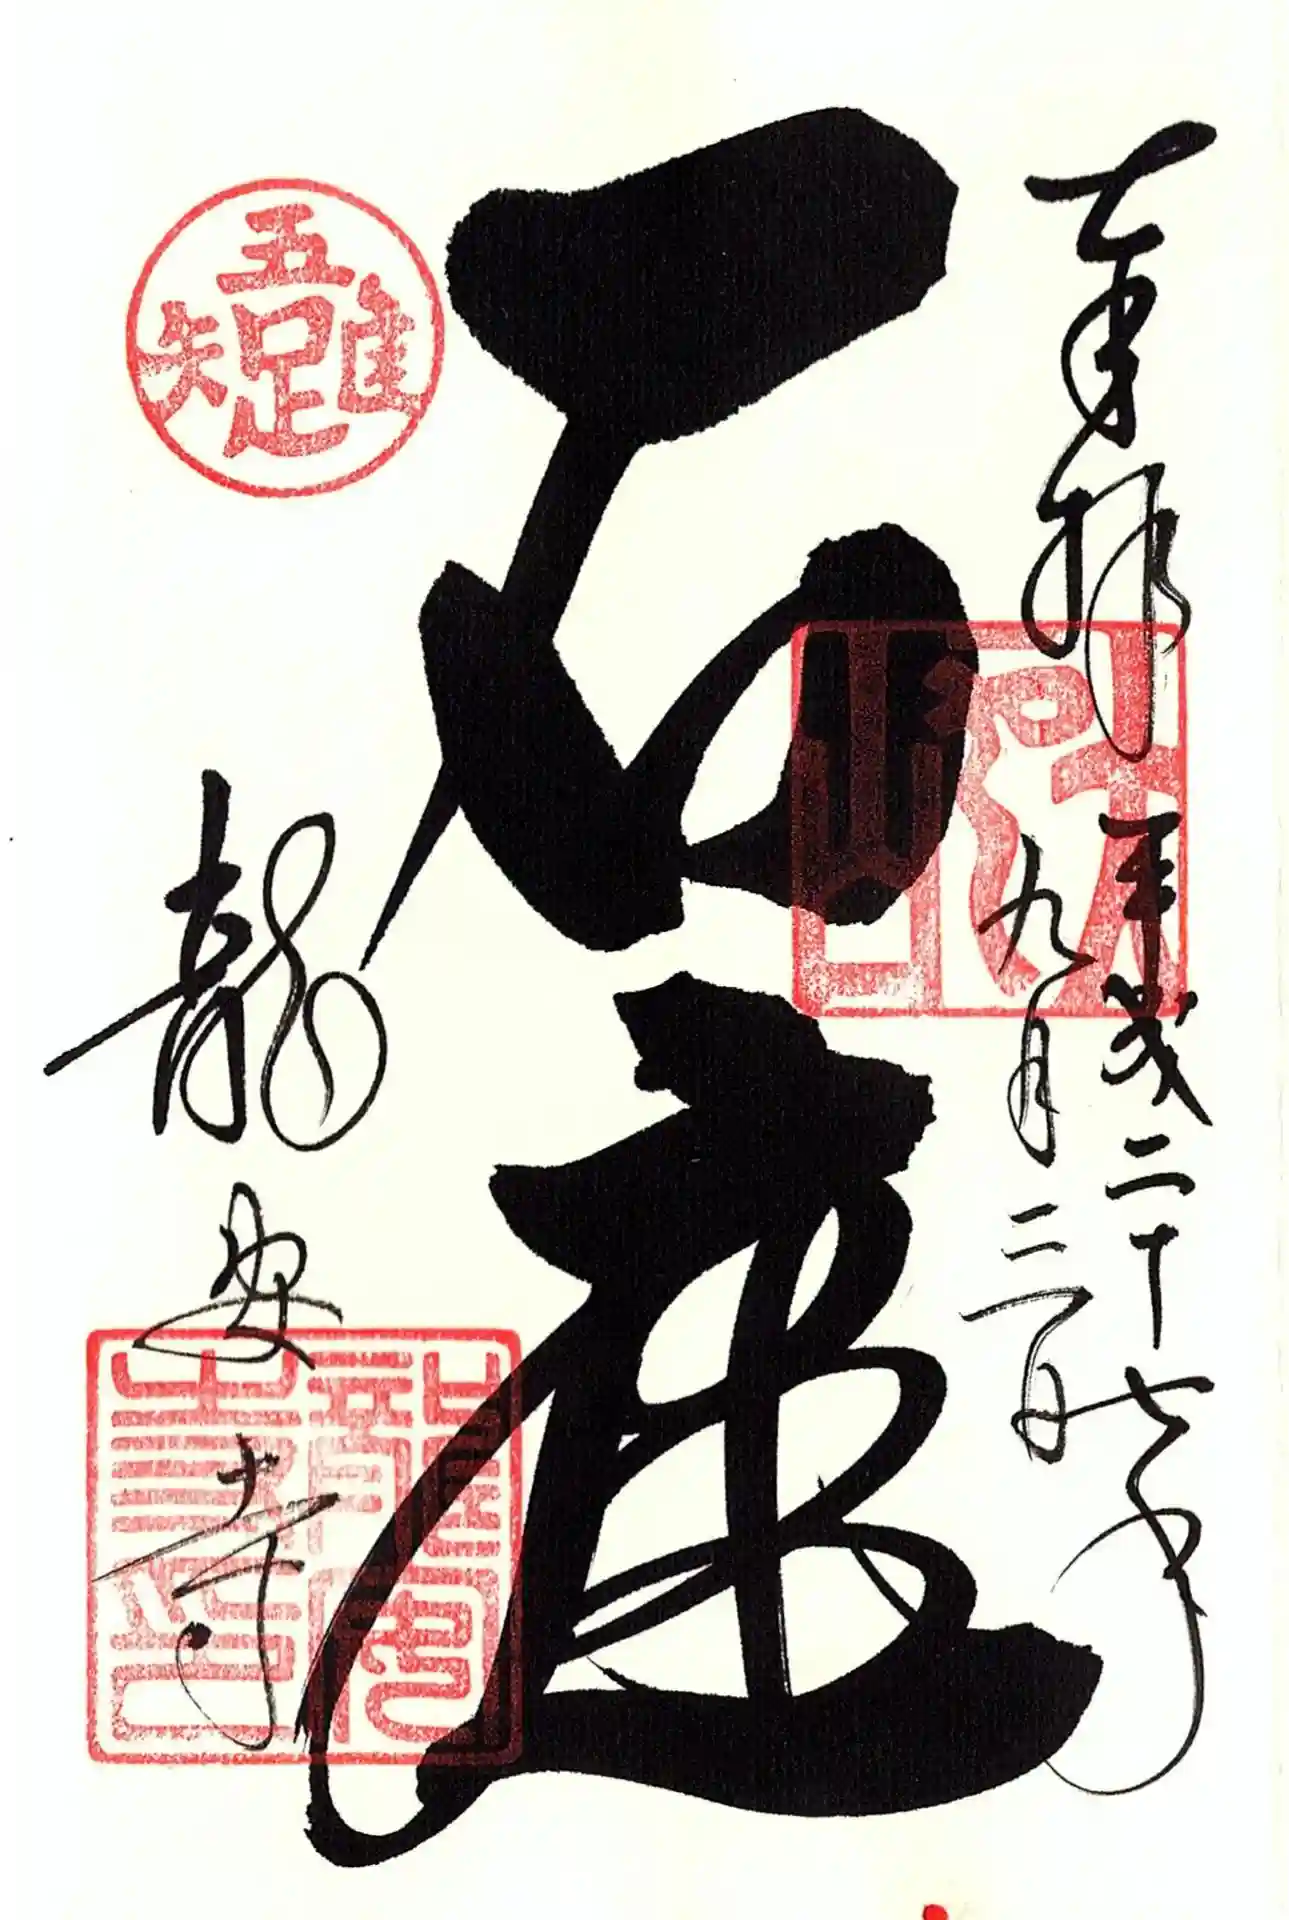 奉拝
平成二十七年
九月
石庭
吾唯足知
龍安寺
龍安寺印